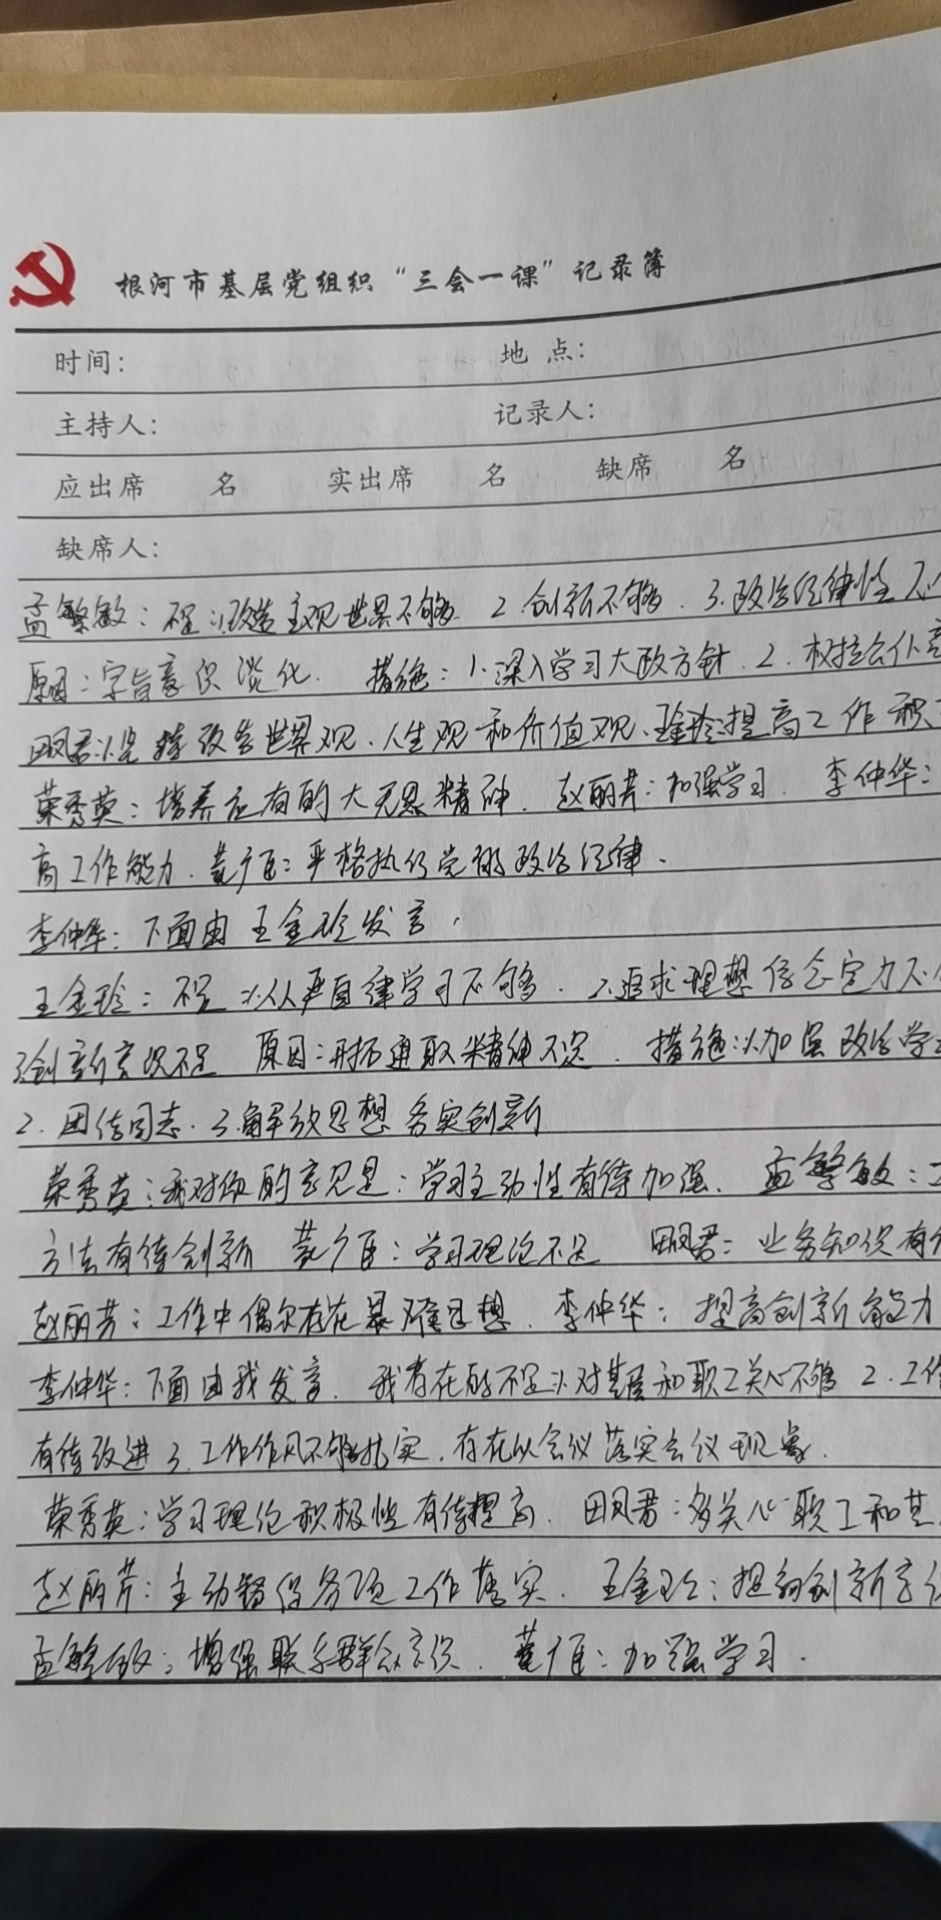 根河市基层党组织“三会一课”记录簿
时间: 地点:
主持人: 记录人:
应出席 名 实出席 名 缺席 名
缺席人:
孟繁敏: 不足: 1.改造主观世界不够. 2.创新不够. 3.政治纪律性
原因: 宗旨意识淡化. 措施: 1.深入学习大政方针. 2.
田凤君: 改造世界观、人生观和价值观、 提高工作积
荣秀英: 培养应有的大无畏精神. 赵丽芳: 加强学习. 李仲华:
高工作能力. : 严格执行党的政治纪律.
李仲华: 下面由王金玲发言.
王金玲: 不足: 1.从严自律学习不够. 2.追求理想信念定力不
3.创新意识不足 原因: 开拓进取精神不足. 措施: 1.加强政治学
2.团结同志. 3.解放思想 务实创新
荣秀英: 我对你的意见是: 学习主动性有待加强. 孟繁敏:
方法有待创新 : 学习理论不足 田凤君: 业务知识有
赵丽芳: 工作中偶尔存在畏难思想. 李仲华: 提高创新能力
李仲华: 下面由我发言. 我存在的不足: 1.对基层和职工关心不够 2.工作
有待改进 3.工作作风不够扎实, 存在以会议落实会议现象.
荣秀英: 学习理论积极性有待提高. 田凤君: 多关心职工和基
赵丽芳: 主动督促各项工作落实. 王金玲: 创新意识
孟繁敏: 增强联系群众意识. : 加强学习.